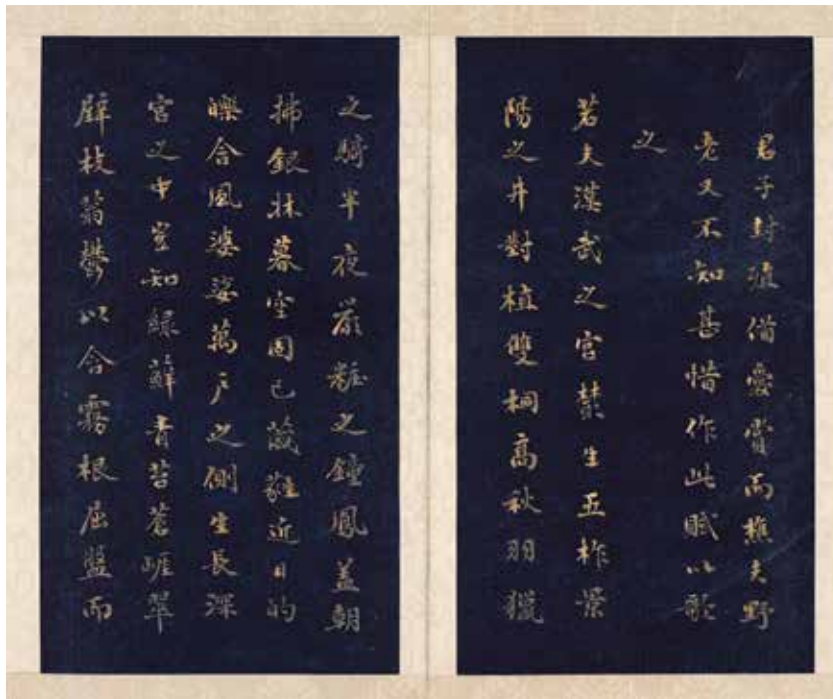 君子封殖備愛賞而樵夫野
老又不知甚惜作此賦以歌
之
若夫漢武之宮叢生五柞景
陽之井對植雙桐高秋羽獵
之騎半夜嚴糚之鐘鳳蓋朝
拂銀牀暮空固已葳蕤近日的
皪含風婆娑萬戶之側生長深
宮之中豈知綠蘚青苔蒼崖翠
壁枝蓊鬱以含霧根屈盤而